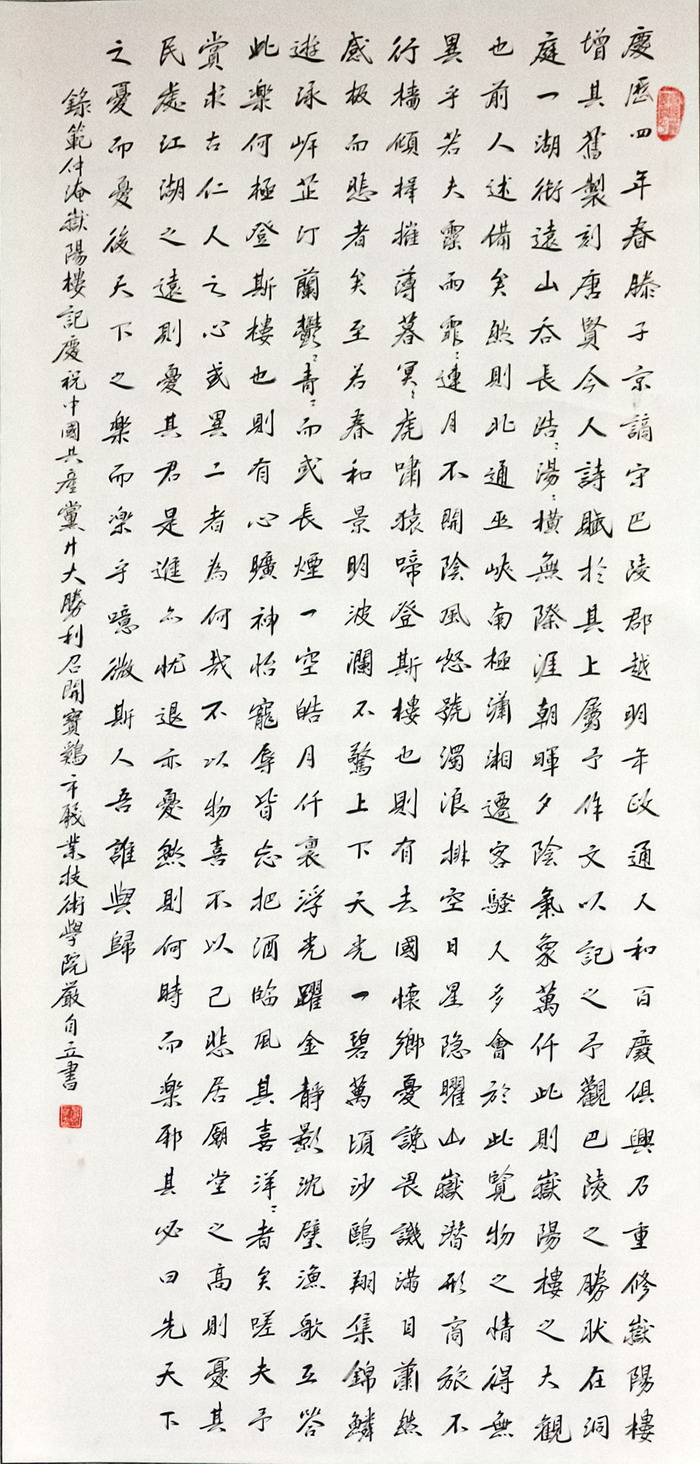 慶歷四年春滕子京謫守巴陵郡越明年政通人和百廢俱興乃重修嶽陽樓
增其舊製刻唐賢今人詩賦於其上屬予作文以記之予觀巴陵之勝狀在洞
庭一湖銜遠山吞長浩〻湯〻橫無際涯朝暉夕陰氣象萬仟此則嶽陽樓之大觀
也前人述備矣然則北通巫峽南極瀟湘遷客騷人多會於此覽物之情得無
異乎若夫霪雨霏〻連月不開陰風怒號濁浪排空日星隱曜山嶽潛形商旅不
行檣傾楫摧薄暮冥〻虎嘯猿啼登斯樓也則有去國懷鄉憂讒畏譏滿目蕭然
感极而悲者矣至若春和景明波瀾不驚上下天光一碧萬頃沙鷗翔集錦鱗
遊泳岸芷汀蘭鬱〻青〻而或長煙一空皓月仟裏浮光躍金靜影沈壁漁歌互答
此樂何極登斯樓也則有心曠神怡寵辱皆忘把酒臨風其喜洋〻者矣嗟夫予
賞求古仁人之心或異二者為何哉不以物喜不以己悲居廟堂之高則憂其
民處江湖之遠則憂其君是進亦忧退亦憂然則何時而樂耶其必曰先天下
之憂而憂後天下之樂而樂乎噫微斯人吾誰與歸
錄範仲淹嶽陽樓記慶祝中國共產黨廿大勝利召開寶鷄市職業技術學院嚴自立書